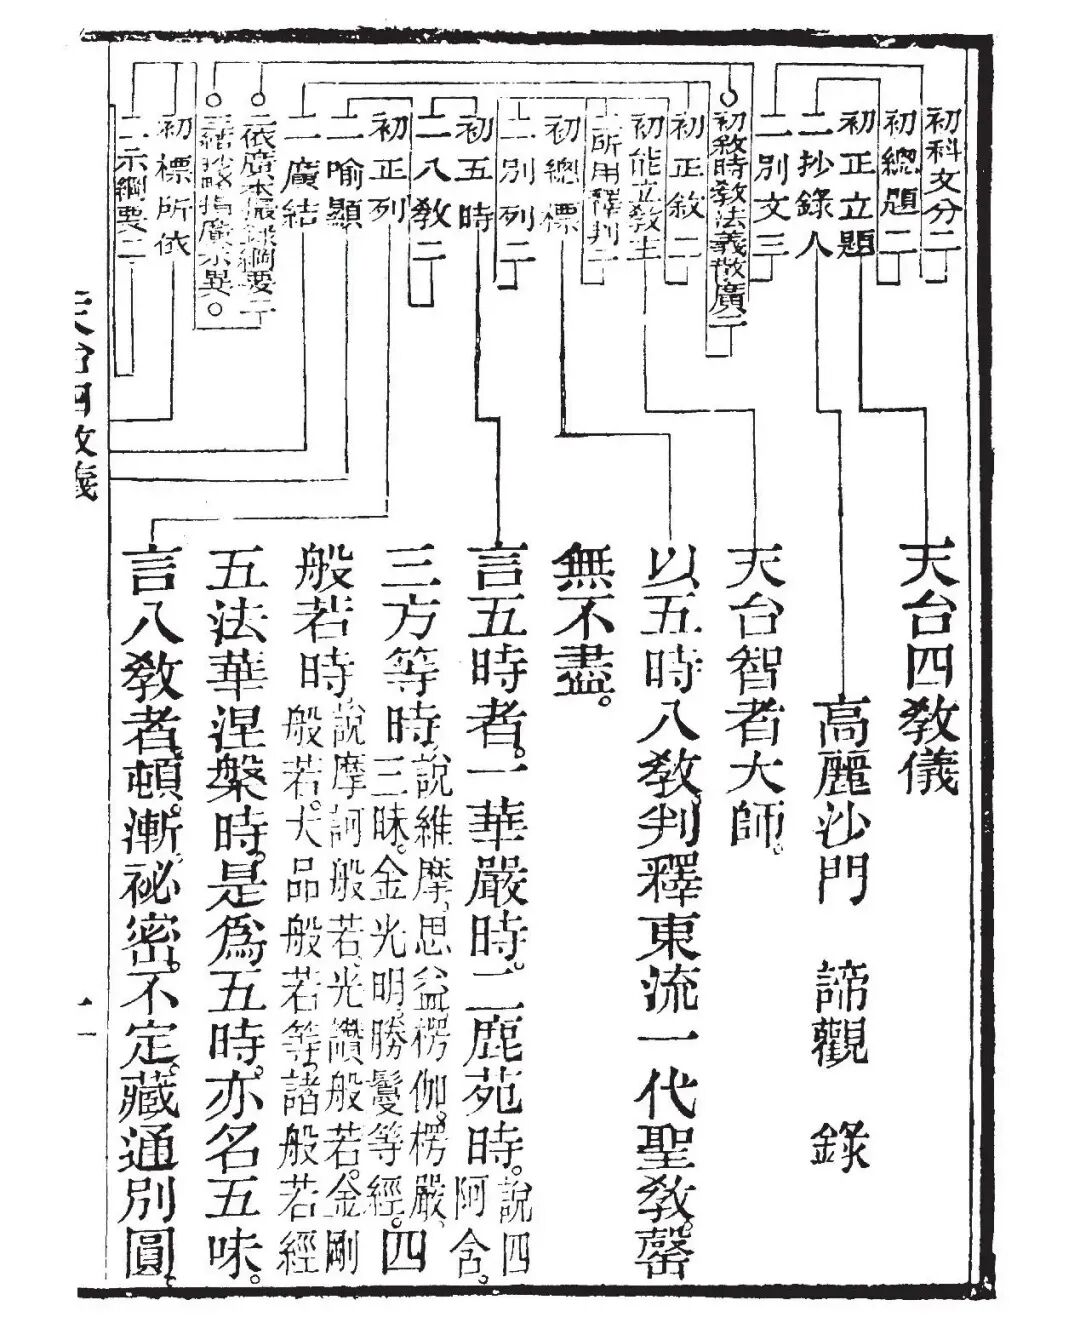 初科文分二
初總題二
初正立題
二抄錄人
二別文三
初敘時敎法義散廣二
初正敘二
初能立敎主
二所用釋判二
初總標
二別列二
初五時
二八敎二
初正列
二喻顯
二廣結
二依廣本撮錄綱要二
三結抄略指廣示異
初標所依
二示綱要二
天台四敎儀
高麗沙門 諦觀 錄
天台智者大師。
以五時八敎。判釋東流一代聖敎。罄
無不盡。
言五時者。一華嚴時。二鹿苑時。說四阿含。
三方等時。說維摩、思益、楞伽。楞嚴、三昧。金光明、勝鬘等經。四
般若時。說摩訶般若。光讚般若。金剛般若。大品般若等。諸般若經
五法華涅槃時。是爲五時。亦名五味。
言八敎者。頓。漸。祕密。不定。藏通別圓。
天台四敎儀
一